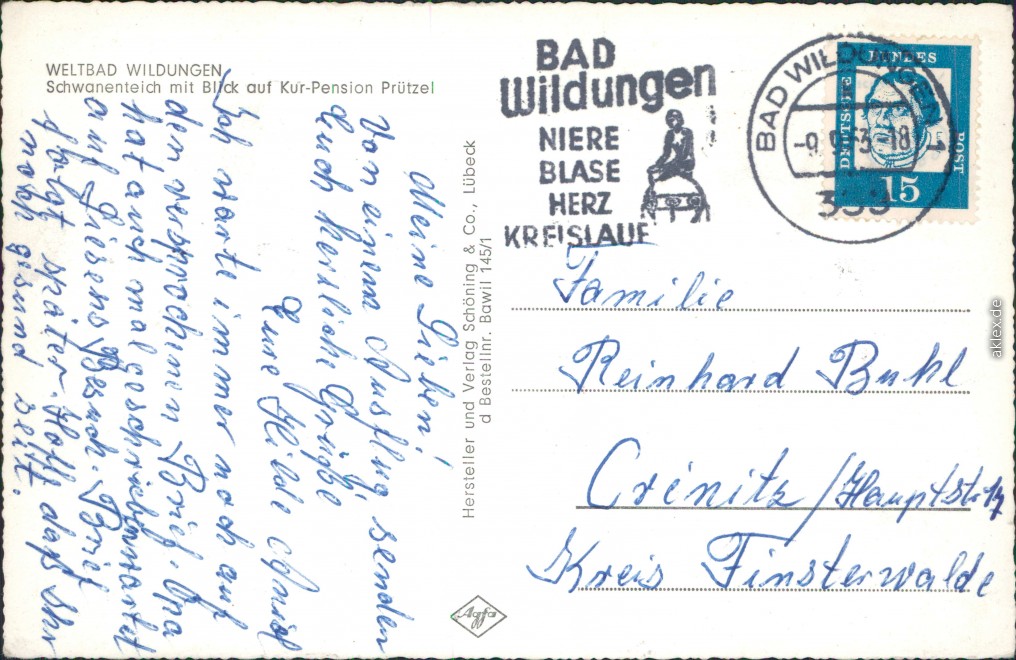 WELTBAD WILDUNGEN
Schwanenteich mit Blick auf Kur-Pension Prützel
Meine Lieben!
Von einem Ausflug senden
Euch herzliche Grüße
Eure Hilde
Ich warte immer noch auf
den versprochenen Brief. Oma
hat auch mal geschrieben wartet
auf Liebens Besuch. Brief
folgt später. Hoffe daß Ihr
noch gesund seit.
Hersteller und Verlag Schöning & Co., Lübeck
d Bestellnr. Bawil 145/1
Agfa
BAD
Wildungen
NIERE
BLASE
HERZ
KREISLAUF
BAD WILDUNGEN 1
-9.9.63-18
DEUTSCHE BUNDESPOST
15
Familie
Reinhard Buhl
Crinitz / Hauptstr. 17
Kreis Finsterwalde
aklex.de